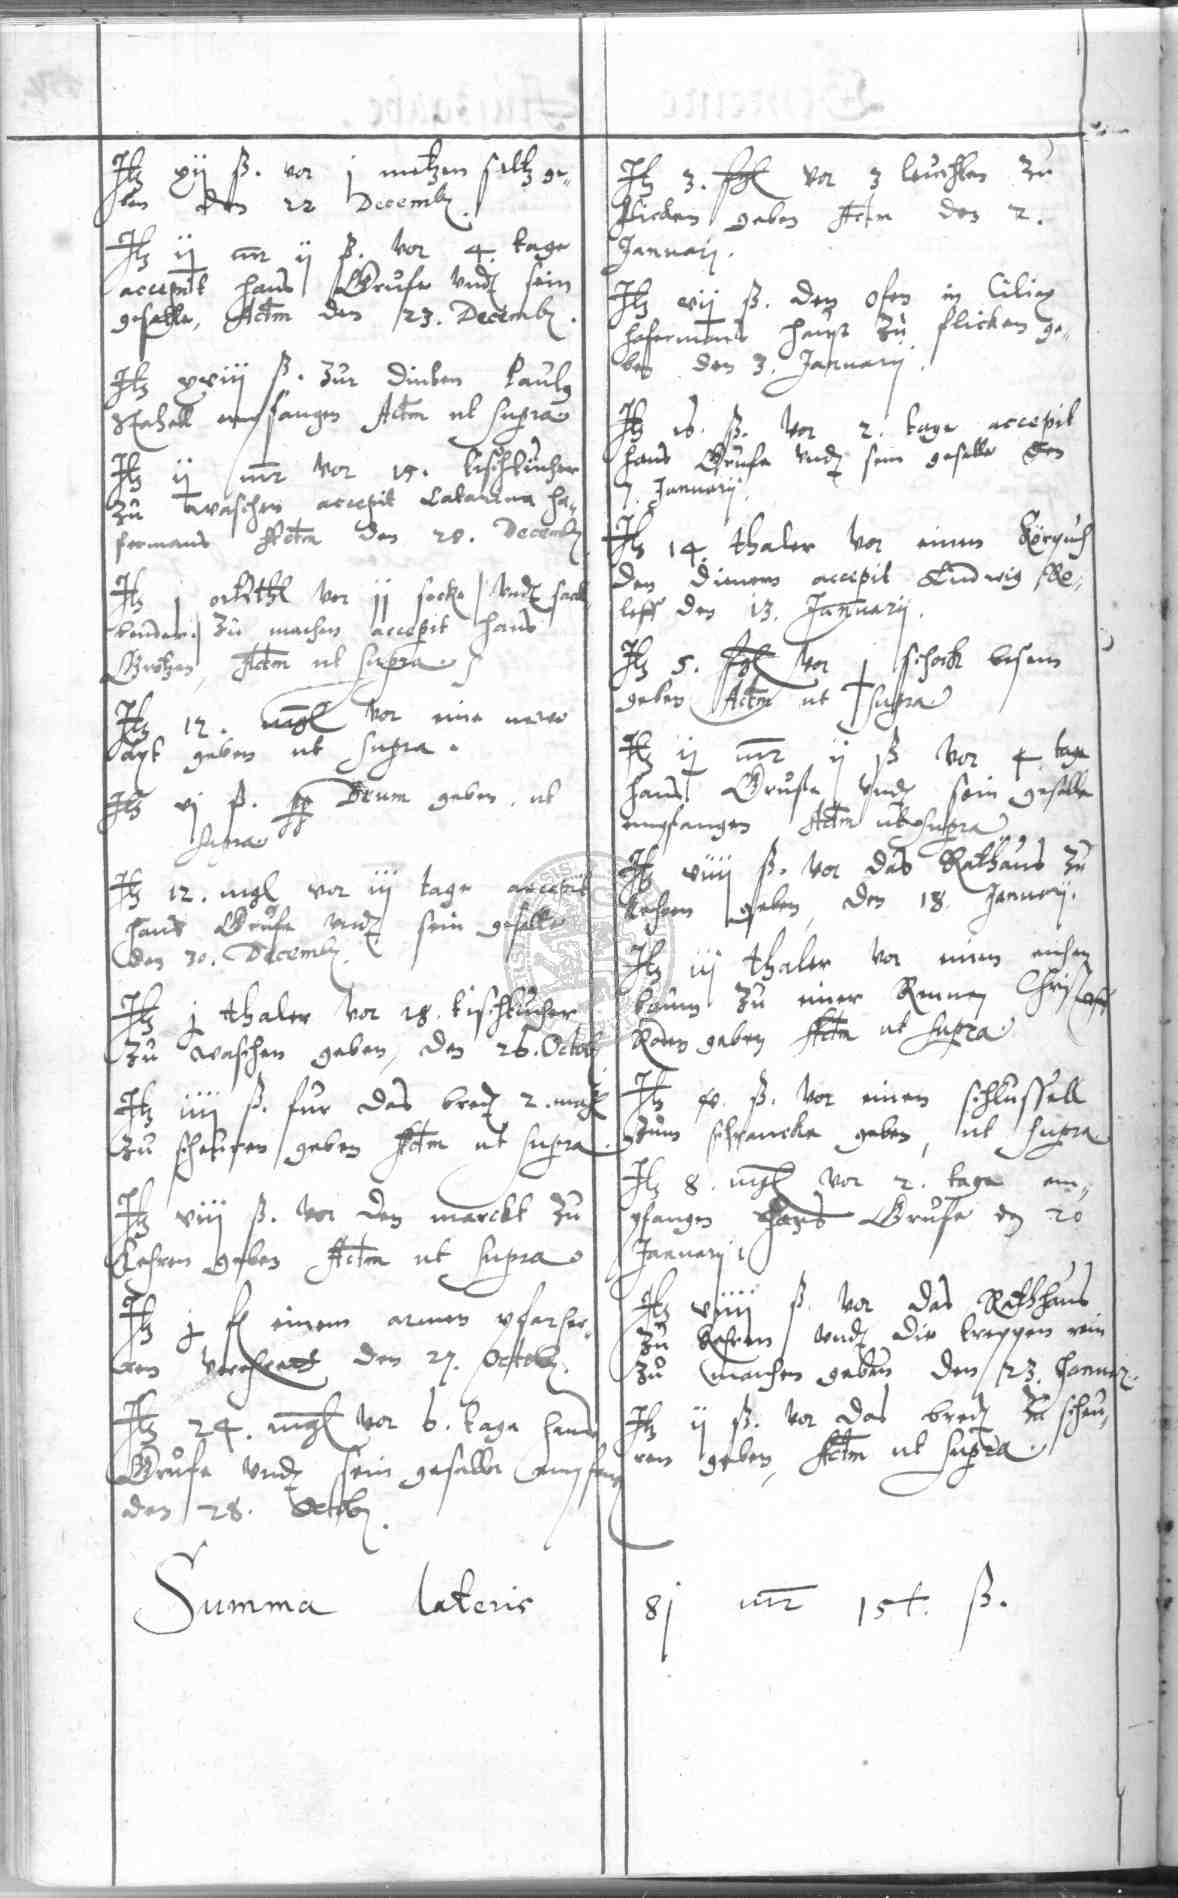 Itz xij ß. vor j metzen saltz ge-
ben den 22 Decemb.
Itz ij mr ij ß. vor 4. tage
accepit hans Grufe vnd sein
geselle, Actm den 23. Decemb.
Itz xviij ß. zur dinten Paulg
empfangen Actm ut supra
Itz ij mr vor 15. tischtücher
zu waschen accepit Catarina ha-
fermans Actm den 28. Decemb
Itz j ortsthl vor ij secke vnd sack
bender zu machen accepit hans
Actm ut supra.
Itz 12. mgl vor eine newe
axt geben ut supra.
Itz vj ß. geben ut
supra
Itz 12. mgl vor iij tage accepit
hans Grufe vnd sein geselle
den 30. Decemb.
Itz j thaler vor 18. tischtücher
zu waschen geben, den 26. Octob
Itz iiij ß. fur das bred 2. mahl
zu scheuren geben Actm ut supra.
Itz viij ß. vor den marckt zu
kehren geben Actm ut supra
Itz j fl einem armen pfarher-
ren verehret den 27. Octob.
Itz 24. mgl vor 6. tage hans
Grufe vnd sein geselle empfang
den 28. Octob.
Summa lateris
Itz 3. fgl vor 3 leuchten zu
flicken geben Actm den 2.
Januarij.
Itz vij ß. den ofen in Cilien
hafermans hause zu flicken ge-
ben den 3. Januarij.
Itz 16. ß. vor 2. tage accepit
hans Grufe vnd sein geselle den
7. Januarij.
Itz 14. thaler vor einen
den dienern accepit Ludwig
den 13. Januarij.
Itz 5. fgl vor j schock besem
geben Actm ut supra
Itz ij mr ij ß vor 4 tage
hans Grufe vnd sein geselle
empfangen Actm ut supra
Itz viiij ß. vor das Rathaus zu
kehren geben, den 18. Januarij.
Itz iij thaler vor einen eichen
baum zu einer Rennen Christoff
Koten geben Actm ut supra.
Itz ß. vor einen schlussell
zum schrancke geben, ut supra
Itz 8. mgl vor 2. tage em-
pfangen Hans Grufe den 20
Januarij
Itz viiij ß. vor das Rathhaus
zu kehren vnd die treppen rein
zu machen geben den 23. Januar.
Itz ij ß. vor das bred zu scheu-
ren geben, Actm ut supra.
8j mr 15 ß.